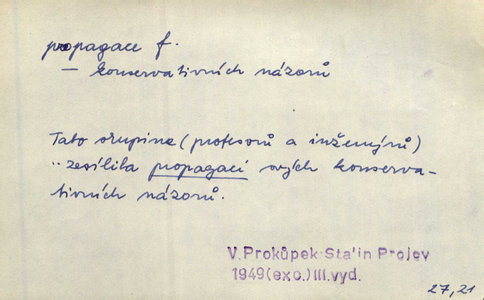 propagace f.
— konservativních názorů
Tato skupina (profesorů a inženýrů)
.. zesílila propagaci svých konserva-
tivních názorů.
V. Prokůpek-Sta'in Projev
1949 (exc.) III. vyd.
27,21